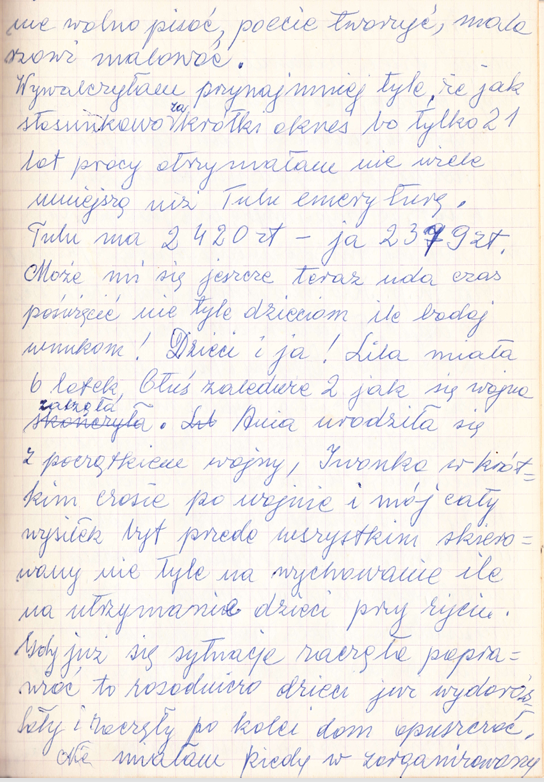 nie wolno pisać, poecie tworzyć, mala
rzowi malować.
Wywalczyłam przynajmniej tyle, że jak
stosunkowo za krótki okres bo tylko 21
lat pracy otrzymałam nie wiele
mniejszą niż Tulu emeryturę.
Tulu ma 2420 zł – ja 2379 zł.
Może mi się jeszcze teraz uda czas
poświęcić nie tyle dzieciom ile bodaj
wnukom! Dzieci i ja! Lila miała
6 latek, Oluś zaledwie 2 jak się wojna
zaczęła
skończyła. Lub Ania urodziła się
z początkiem wojny, Iwonka w krót=
kim czasie po wojnie i mój cały
wysiłek był przede wszystkim skiero=
wany nie tyle na wychowanie ile
na utrzymanie dzieci przy życiu.
Gdy już się sytuacje zaczęła popra=
wiać to rosadniczo dzieci już wydoroś=
lały i zaczęły po kolei dom opuszczać.
miałam kiedy w zorganizowany